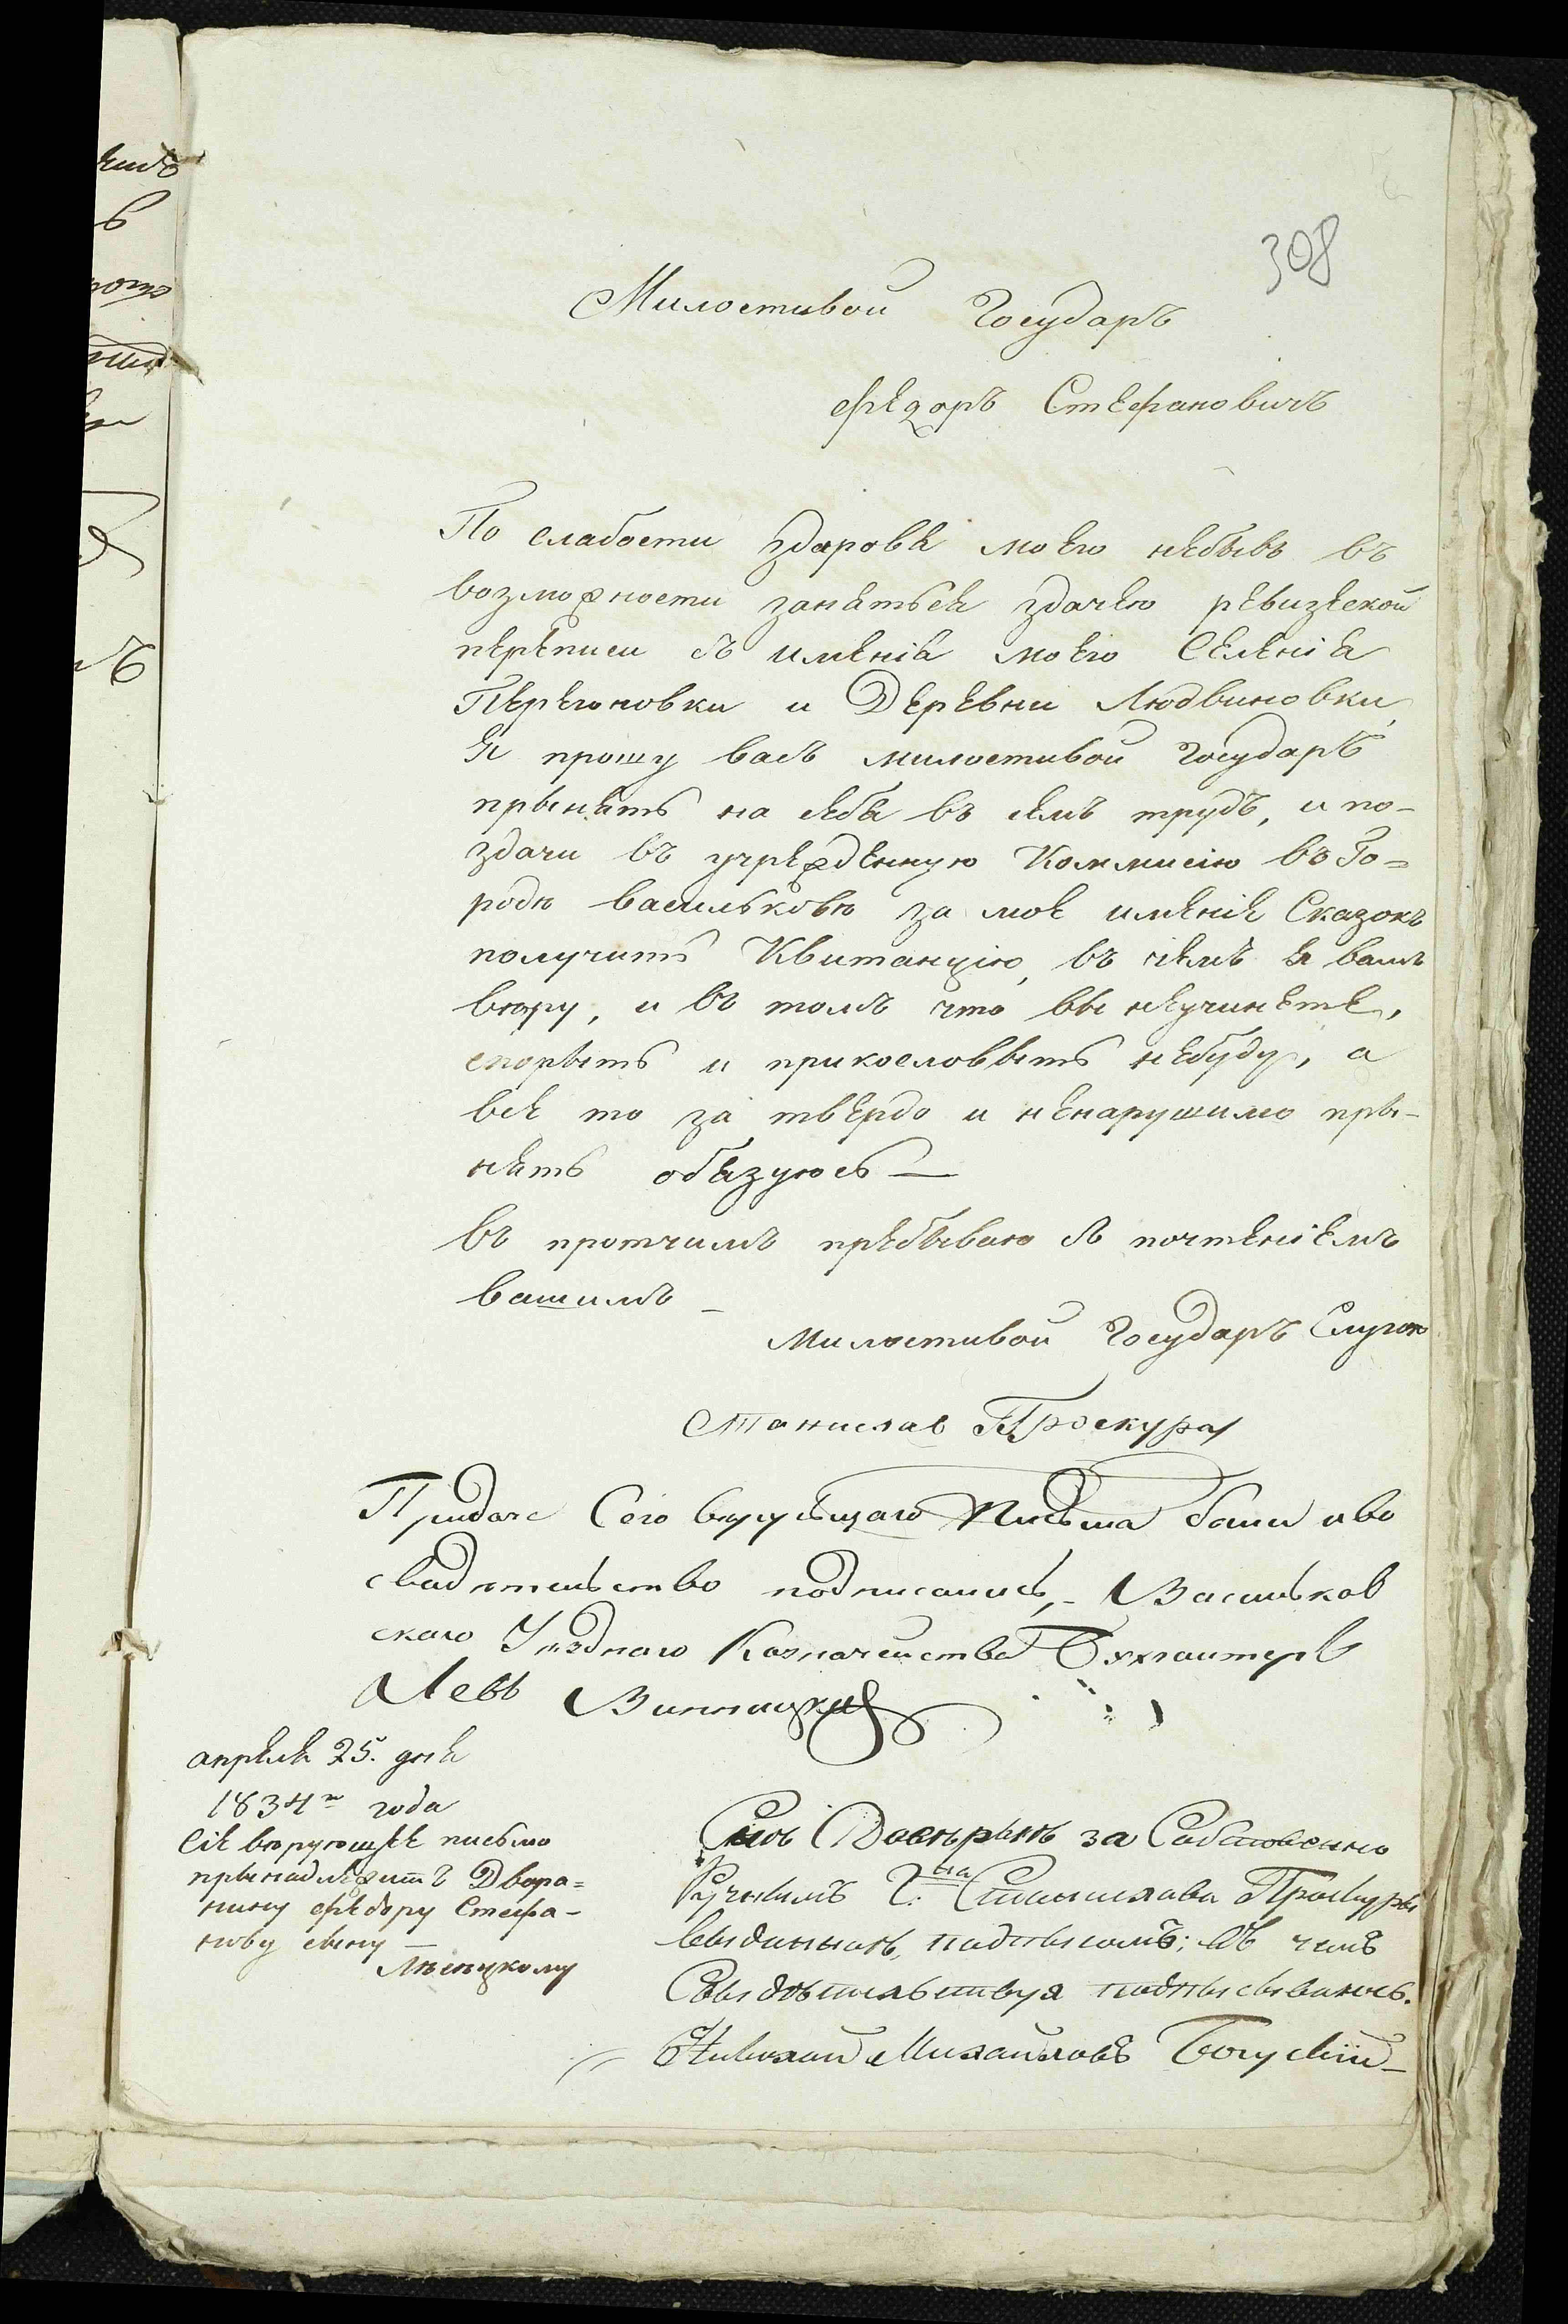 308
Милостивой Государь
Федоръ Стефановичъ
По слабости здаровя моего небывъ въ
возможности заняться здачею ревизской
переписи съ именія моего Селенія
Перегоновки и Деревни Людвиновки,
я прошу васъ милостивой Государь
прынять на себя въ семъ трудъ, и по-
здачи въ учрежденную Коммисію въ Го=
роде васильковѣ за мое именіе Сказокъ
получить Квитанцію, въ чемъ я вамъ
вѣру, и въ томъ что вы неучинете,
спорыть и прикословыть небуду, а
все то за твердо и ненарушимо пры-
нять обязуюсь —
въ протчимъ пребываю съ почтеніемъ
вашимъ –
Милостивой Государь Слугою
Станислав Проскура
Придаче Сего верующаго Письма были и во
свидѣтельство подписались, - Васильков
скаго Уѣзднаго Казначейства Бухгалтеръ
Левъ Винницкий
апреля 25. дня
1834го года
сіе верующее письмо
принадлежитъ Дворя=
нину Федору Стефа-
нову сыну
Лѣсецкому
Сию Довѣрынь за Собственно
Ручнымъ Г:на Станислава Проскуры
выданнаь, подписомъ; Въ чемъ
Свидѣтельствуя подписываюсь.
Николай Михайловъ Богускій